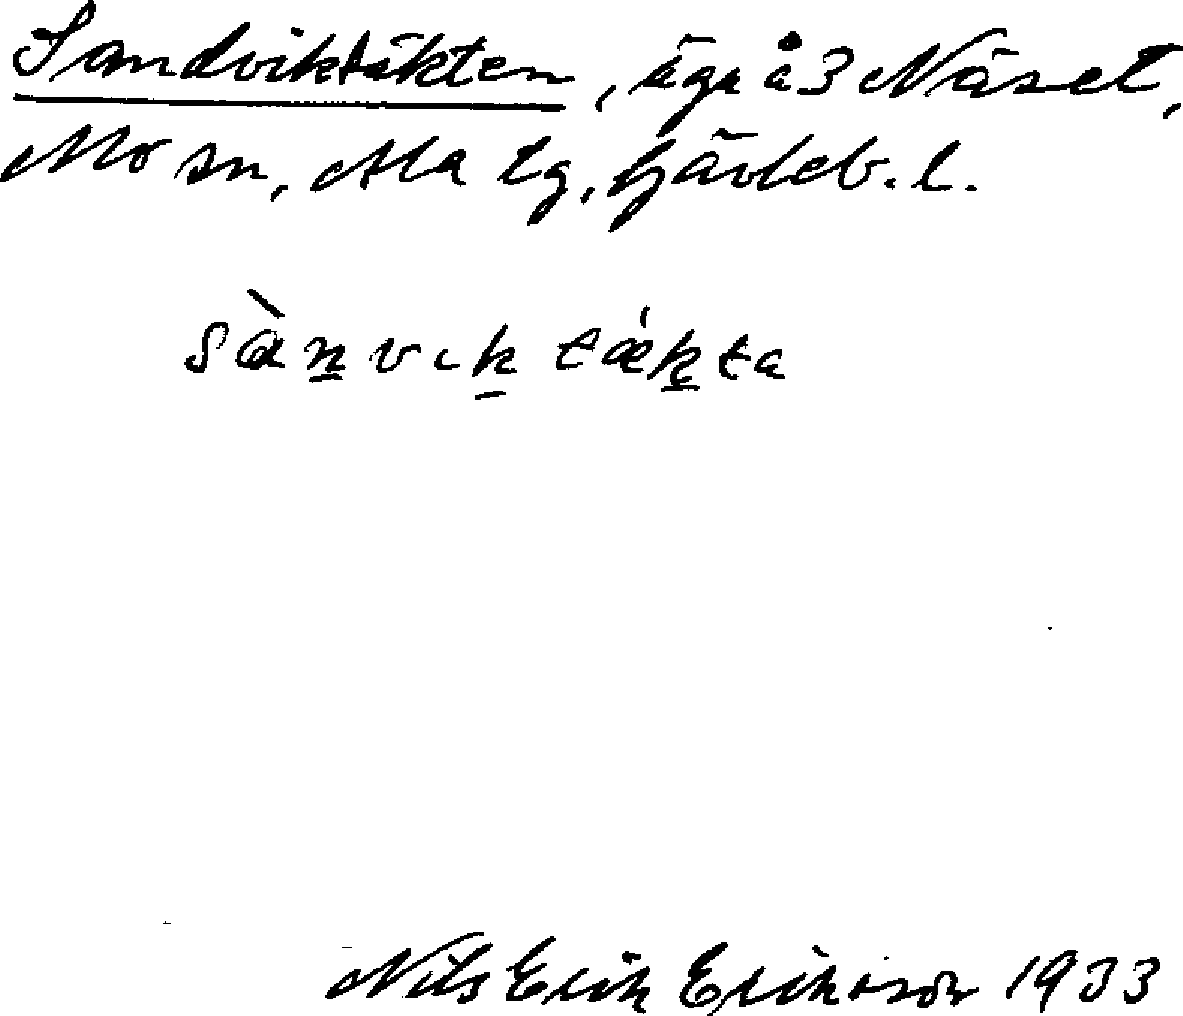 Sandviktäkten, äga å 3 Näset,
Mo sn, Ala tg, Gävleb. l.
sàn̠vik̠ tǽk̠ta
Nils Erik Eriksson 1933